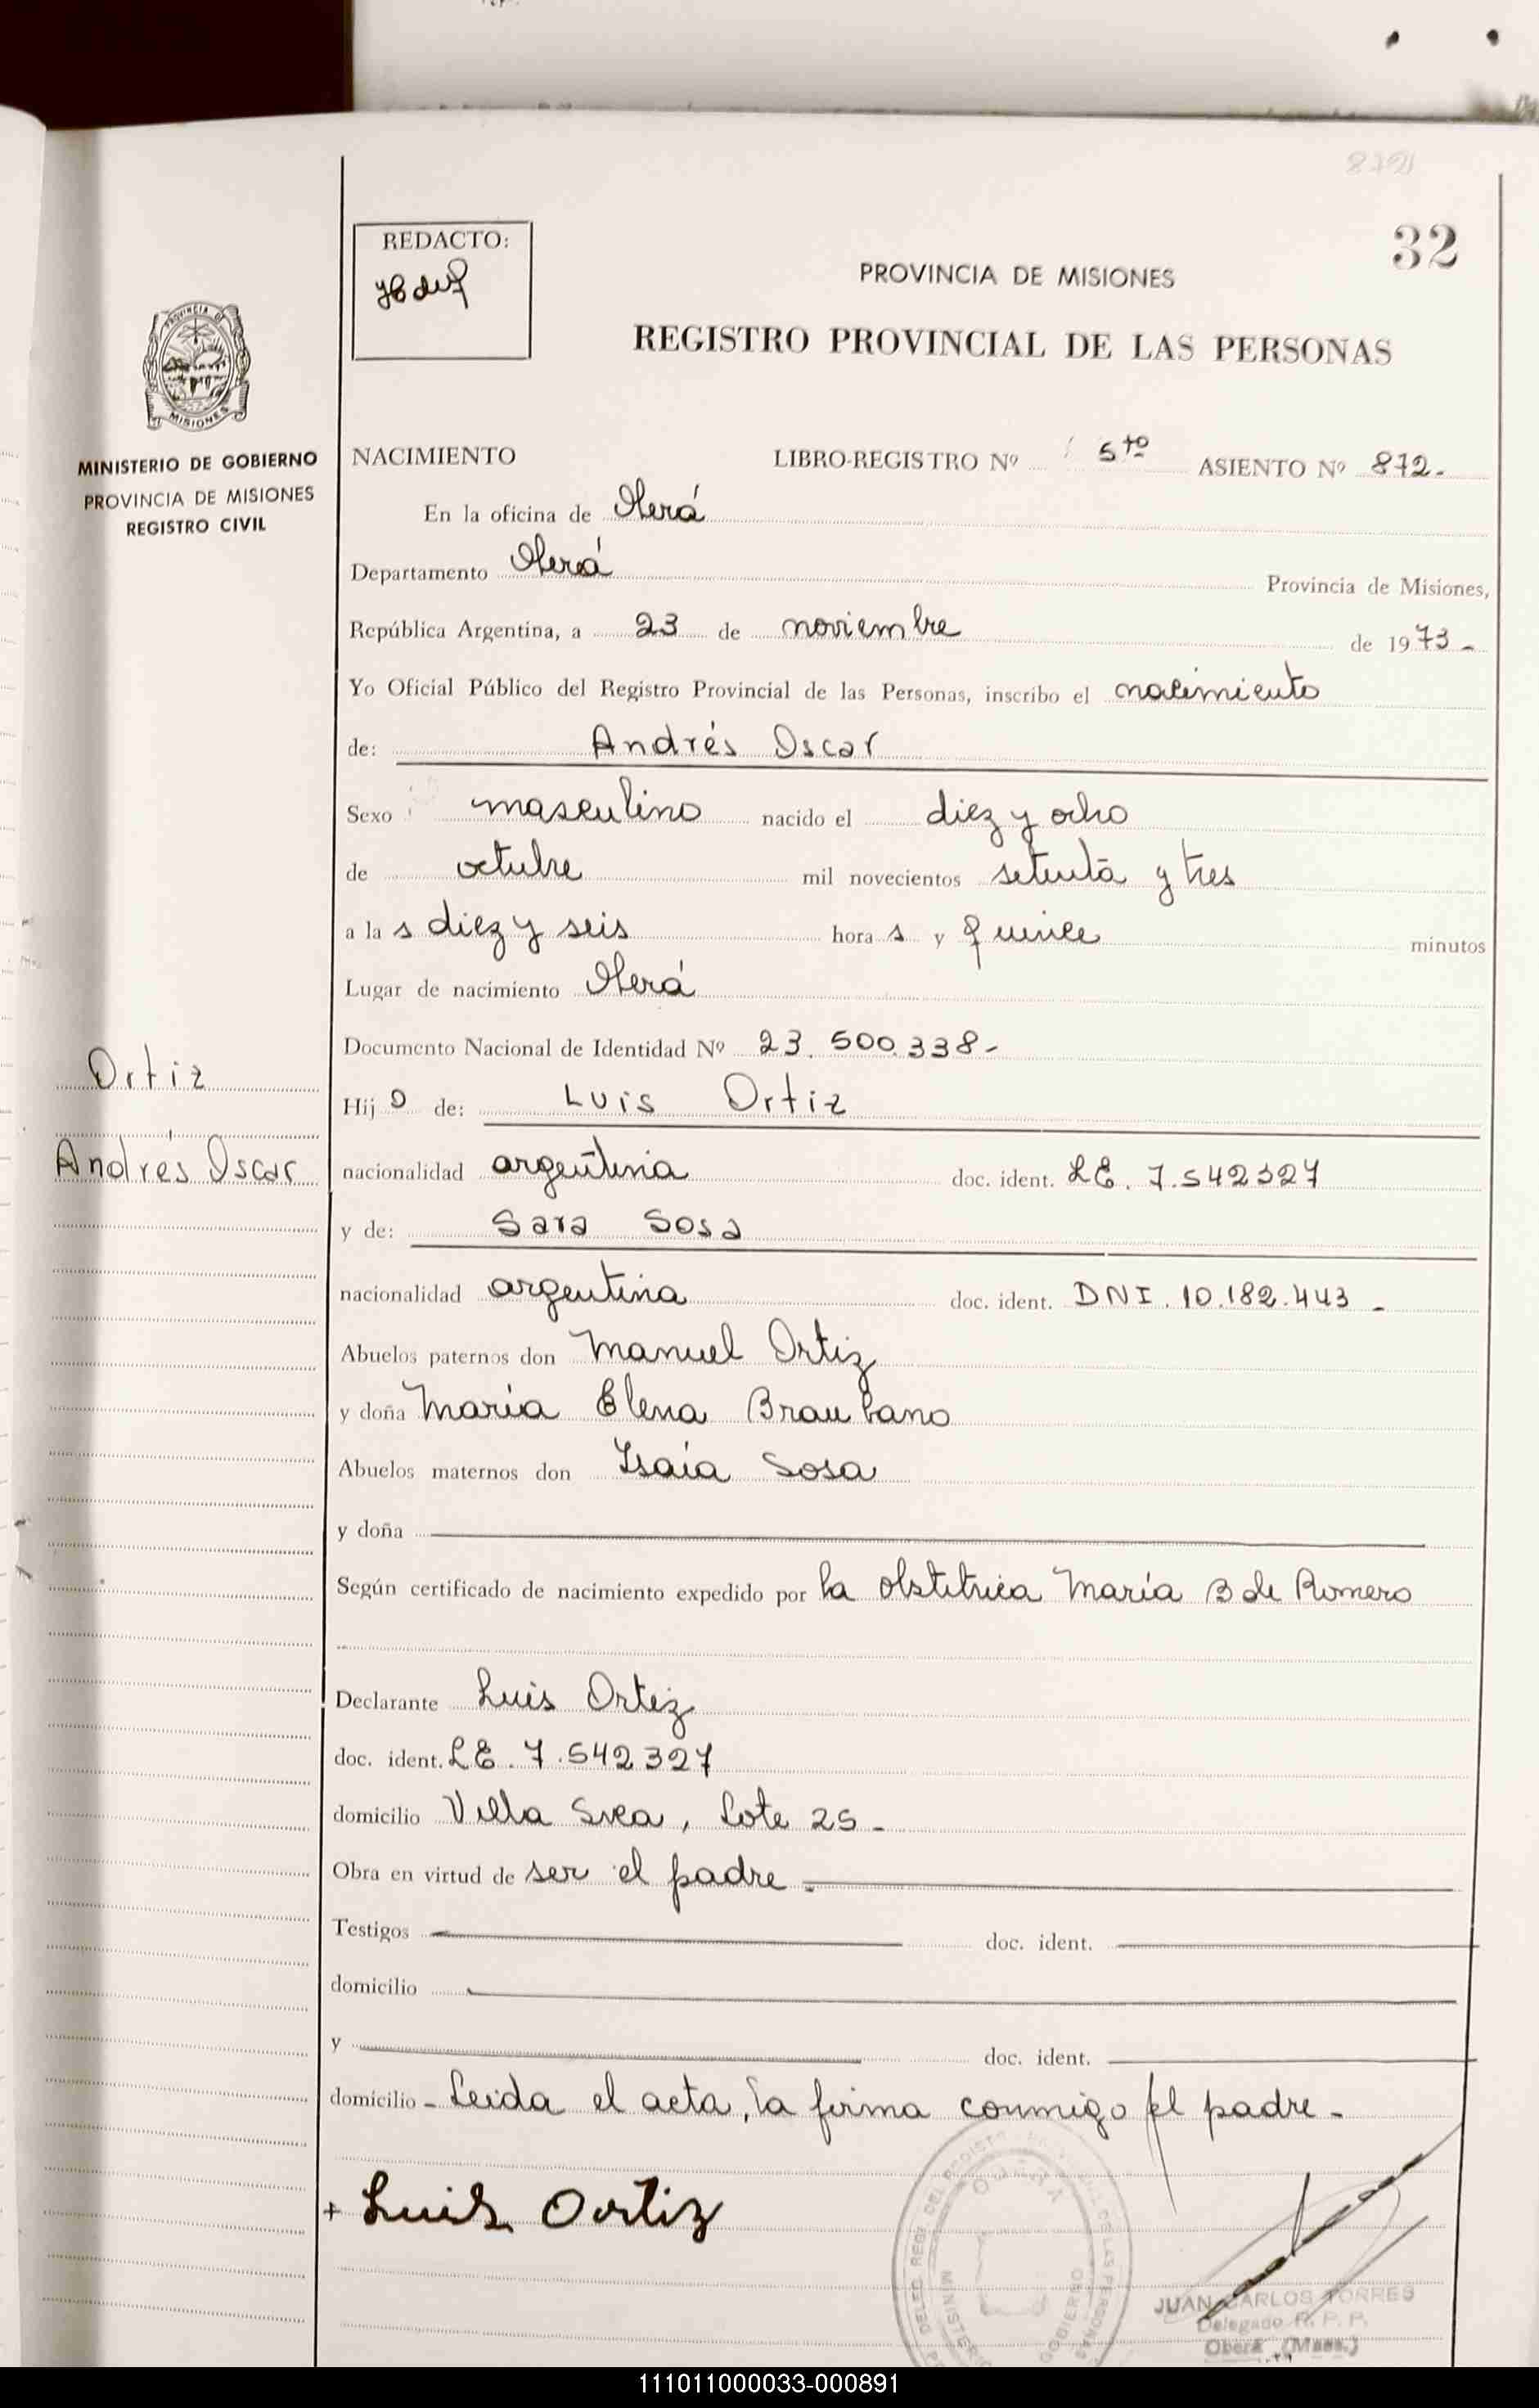 872
32
REDACTO:
PROVINCIA DE MISIONES
REGISTRO PROVINCIAL DE LAS PERSONAS
MISIONES
MINISTERIO DE GOBIERNO
PROVINCIA DE MISIONES
REGISTRO CIVIL
NACIMIENTO LIBRO-REGISTRO Nº 5to ASIENTO Nº 872.-
En la oficina de Oberá
Departamento Oberá Provincia de Misiones,
República Argentina, a 23 de noviembre de 1973-
Yo Oficial Público del Registro Provincial de las Personas, inscribo el nacimiento
de: Andrés Oscar
Sexo masculino nacido el diez y ocho
de octubre mil novecientos setenta y tres
a la s diez y seis hora s y quince minutos
Lugar de nacimiento Oberá
Documento Nacional de Identidad Nº 23.500.338-
Ortiz
Hij o de: Luis Ortiz
Andrés Oscar
nacionalidad argentina doc. ident. LE. 7.542327
y de: Sara Sosa
nacionalidad argentina doc. ident. DNI. 10.182.443-
Abuelos paternos don Manuel Ortiz
y doña María Elena
Abuelos maternos don Isaia Sosa
y doña
Según certificado de nacimiento expedido por la obstetrica María B de Romero
Declarante Luis Ortiz
doc. ident. LE. 7.542327
domicilio Villa Svea, Lote 25-
Obra en virtud de ser el padre-
Testigos doc. ident.
domicilio
y doc. ident.
domicilio - Leida el acta, la firma conmigo el padre-
+ Luis Ortiz
JUAN CARLOS TORRES
Delegado R. P. P.
Oberá (Mnes.)
111011000033-000891